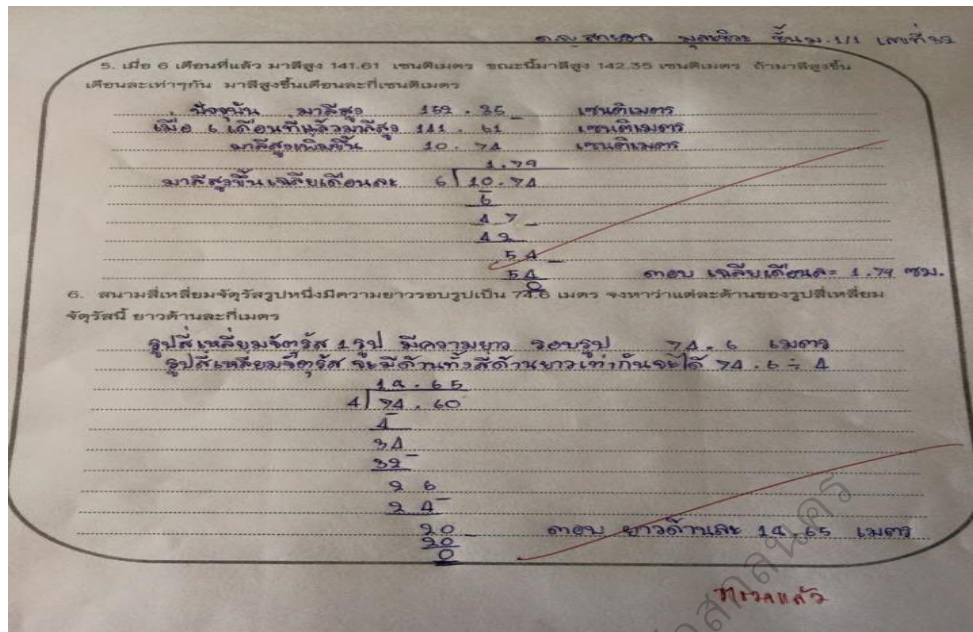 ชั้น ม.1/1 เลขที่ 32
5. เมื่อ 6 เดือนที่แล้ว มาลีสูง 141.61 เซนติเมตร ขณะนี้มาลีสูง 142.35 เซนติเมตร ถ้ามาลีสูงขึ้น
เดือนละเท่าๆกัน มาลีสูงขึ้นเดือนละกี่เซนติเมตร
ปัจจุบัน มาลีสูง 152.35 เซนติเมตร
เมื่อ 6 เดือนที่แล้วมาลีสูง 141.61 เซนติเมตร
มาลีสูงเพิ่มขึ้น 10.74 เซนติเมตร
1.79
มาลีสูงขึ้นเฉลี่ยเดือนละ 6 10.74
6
47
42
54
54 ตอบ เฉลี่ยเดือนละ 1.79 ซม.
0
6. สนามสี่เหลี่ยมจัตุรัสรูปหนึ่งมีความยาวรอบรูปเป็น 74.6 เมตร จงหาว่าแต่ละด้านของรูปสี่เหลี่ยม
จัตุรัสนี้ ยาวด้านละกี่เมตร
รูปสี่เหลี่ยมจัตุรัส 1 รูป มีความยาว รอบรูป 74.6 เมตร
รูปสี่เหลี่ยมจัตุรัส จะมีด้านทั้งสี่ด้านยาวเท่ากันจะได้ 74.6 ÷ 4
18.65
4 74.60
4
34
32
2 6
2 4
20 ตอบ ยาวด้านละ 18.65 เมตร
20
0
ตรวจแล้ว
สกลนคร